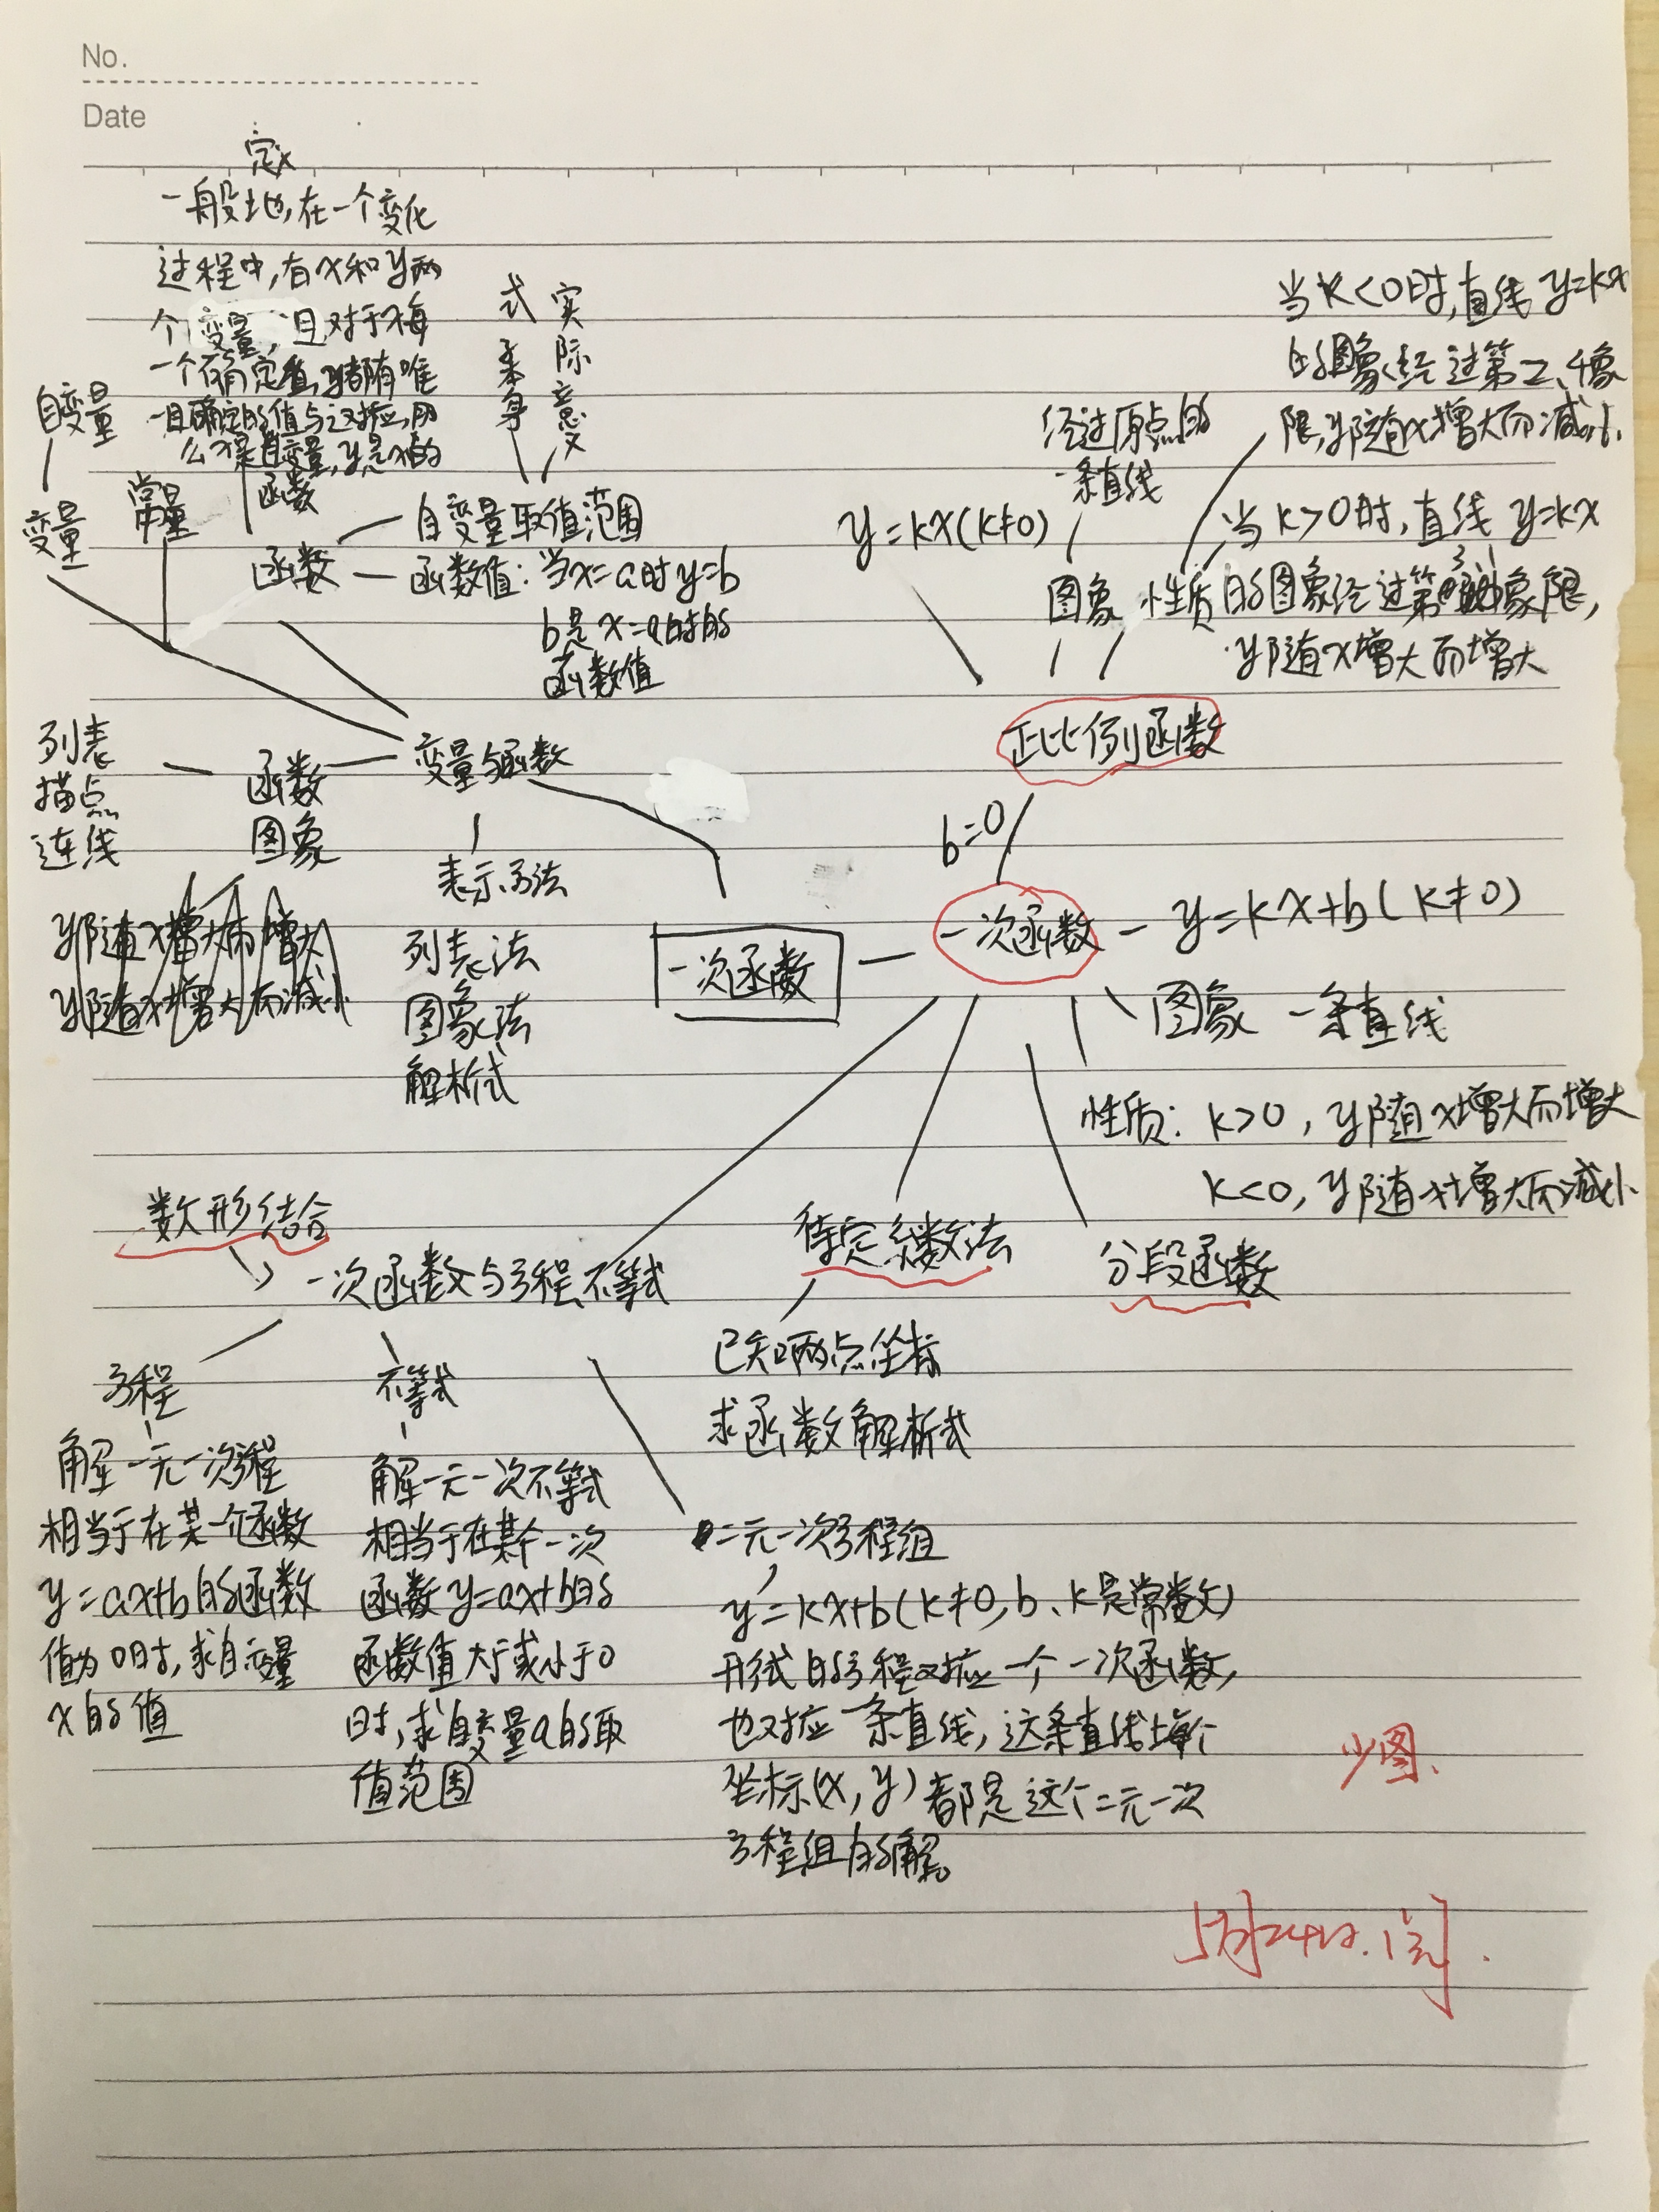 No.
Date
定义
一般地,在一个变化
过程中,有x和y两
个变量,且对于x每
一个确定值,y都有唯
一且确定的值与之对应,那
么x是自变量,y是x的
函数
自变量
变量
常量
式子本身
实际意义
函数
自变量取值范围
函数值:当x=a时y=b
b是x=a时的
函数值
当k<0时,直线y=kx
的图象经过第二、四象
限,y随x增大而减小
经过原点的
一条直线
y=kx(k≠0)
图象
性质
当k>0时,直线y=kx
的图象经过第 象限,
y随x增大而增大
正比例函数
b=0
列表
描点
连线
函数
图象
变量与函数
y随x增大而增大
y随x增大而减小
表示方法
列表法
图象法
解析式
一次函数
一次函数
y=kx+b(k≠0)
图象 一条直线
性质:k>0,y随x增大而增大
k<0,y随x增大而减小
数形结合
一次函数与方程不等式
待定系数法
分段函数
已知两点坐标
求函数解析式
方程
解一元一次方程
相当于在某一个函数
y=ax+b的函数
值为0时,求自变量
x的值
不等式
解一元一次不等式
相当于在某个一次
函数y=ax+b的
函数值大于或小于0
时,求自变量a的取
值范围
二元一次方程组
y=kx+b(k≠0,b、k是常数)
形式的方程对应一个一次函数,
也对应一条直线,这条直线上每个
坐标(x,y)都是这个二元一次
方程组的解。
少图.
5月24日.阅.